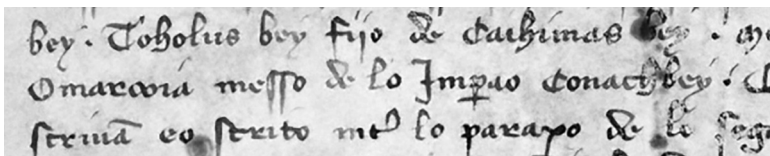 bey. Toholus bey fijo de Caihimas bey. me
Omarovia messo de lo Imp̱ao Conachbey.
scriuã eo scrito int' lo paraxo de le seg